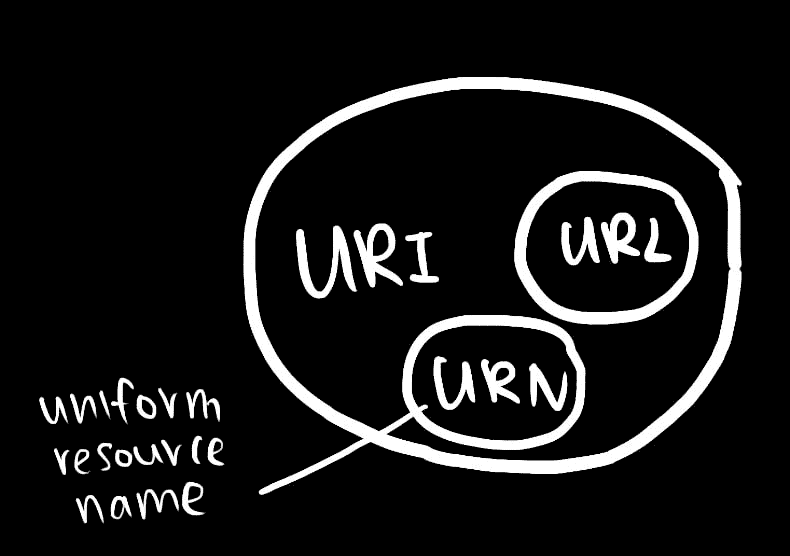 URI
URL
URN
uniform
resource
name